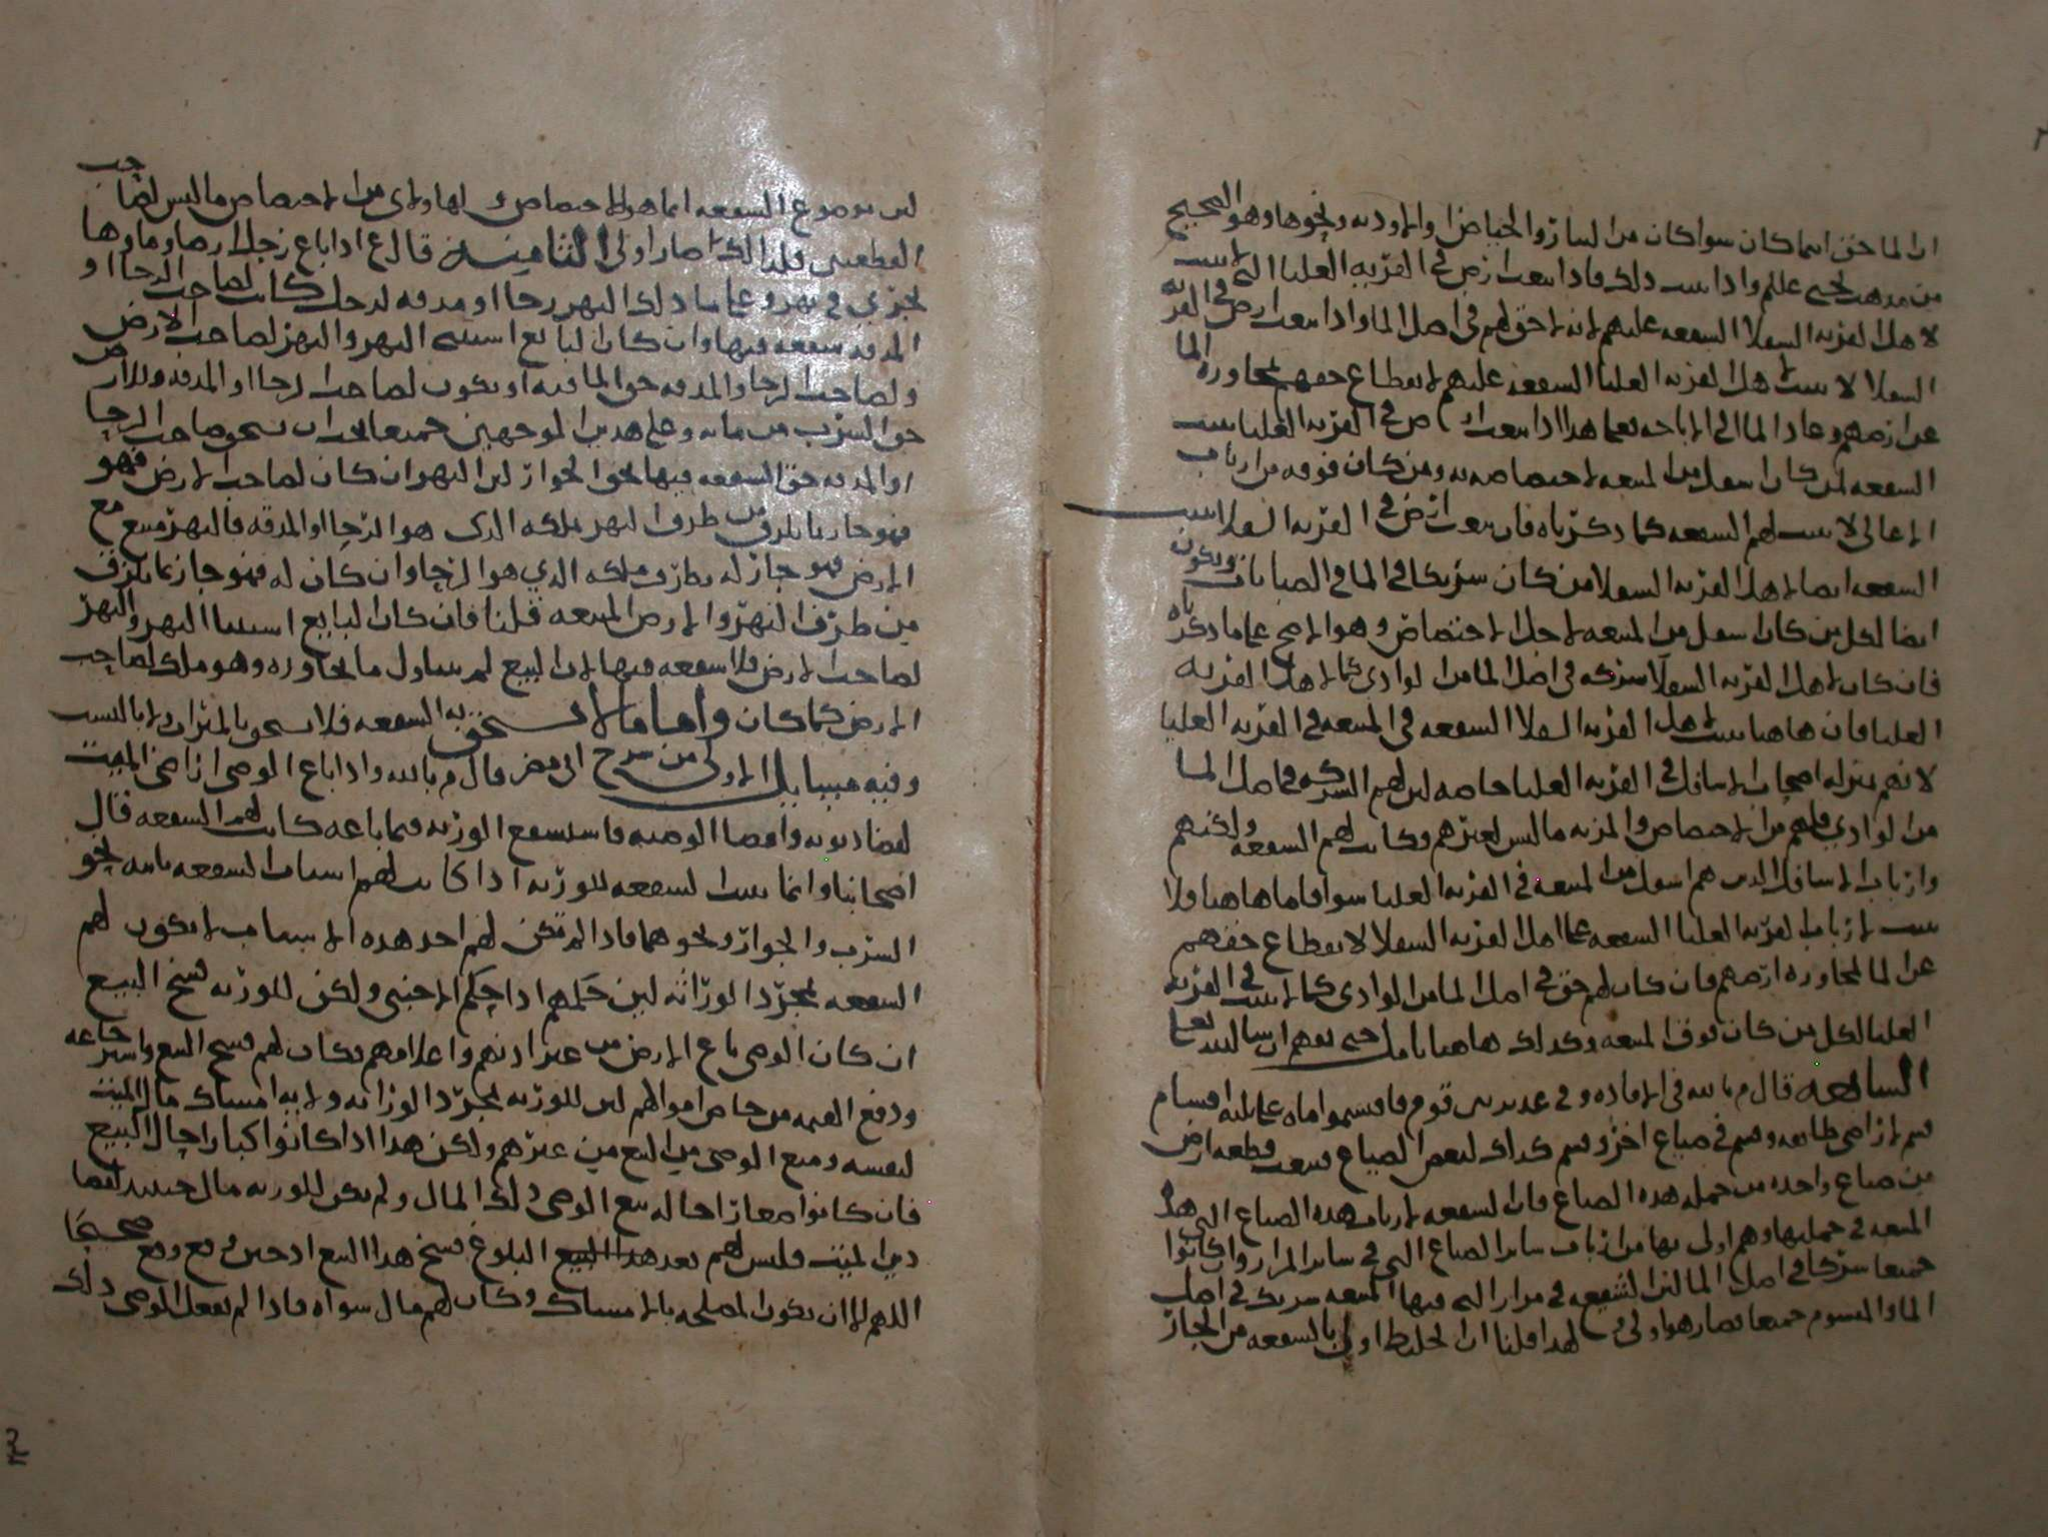 ان الما حق اينما كان سوا كان من البيار والحياض والاوديه ونحوها وهو الصحيح
من مذهب يحيى عللم واذا ثبت ذلك فاذا بيعت ارض في القريه العليا التي لا تثبت
لاهل القريه السفلا الشفعه عليهم لانه لا حق لهم في اصل الما واذا بيعت ارض في القريه
السفلا لا يثبت لاهل القريه العليا الشفعه عليهم لانقطاع حقهم بمجاوره الما
عن ارضهم وعاد الما الى الاباحه فعلى هذا اذا بيعت ارض في القريه العليا يثبت
الشفعه لمن كان اسفل من المبيعه لاختصاصه به ومن كان فوقه من ارباب
الاعالي لا يثبت لهم الشفعه كما ذكرناه فان بيعت ارض في القريه السفلا يثبت
الشفعه ايضا لاهل القريه السفلا من كان شريكا في الما في الصبابات ويكون
ايضا لكل من كان اسفل من المبيعه لاجل الاختصاص وهو الاصح على ما ذكرناه
فان كان لاهل القريه السفلا شركه في اصل الما من الوادي كما لاهل القريه
العليا فان هاهنا يثبت لاهل القريه السفلا الشفعه في المبيعه في القريه العليا
لانهم بمنزله اصحاب الاسافل في القريه العليا خاصه لان لهم الشركه في اصل الما
من الوادي فلهم من الاختصاص والمزيه ما ليس لغيرهم وكانت لهم الشفعه ولكنهم
وارباب الاسافل الذين هم اسفل من المبيعه في القريه العليا سوا فاما هاهنا ولا
يثبت لارباب القريه العليا الشفعه على اهل القريه السفلا لانقطاع حقهم
عن الما لمجاوره ارضهم فان كان لهم حق في اصل الما من الوادي كما لا يثبت في القريه
العليا لكل من كان فوق المبيعه وكذلك هاهنا تامل حتى تفهم ان شا الله تعالى
السابعه قال م بالله في الافاده وفي غدير بين قوم فاقتسموا ماه على ثلثه اقسام
قسم لاراضي طايفه وقسم في ضياع اخر وقسم كذلك لبعض الضياع فبيعت قطعه ارض
من ضياع واحده من جمله هذه الضياع فان الشفعه لارباب هذه الضياع التي هذه
المبيعه في جملتها وهم اولى بها من ارباب ساير الضياع التي في ساير المرار وان كانوا
جميعا شركا في اصل الما لان الشفيع في مرار التي فيها المبيعه شريك في اصل
الما والمقسوم جميعا فصار هو اولى ولهذا قلنا ان الخليط اولى بالشفعه من الجار
لان موضوع الشفعه انما هو الاختصاص ولهاولاي من الاختصاص ما ليس لصاحب
القطعتين فلذلك صار اولى الثامنه قال ع اذا باع رجل ارضا وماوها
يجري في نهر وعلى ما ذلك النهر رحا او مدقه لرجل كانت لصاحب الرحا او
المدقه شفعه فيها وان كان البايع استثنى النهر والنهر لصاحب الارض
ولصاحب الرحا والمدقه حق الما فيه او يكون لصاحب الرحا او المدقه وللارض
حق الشرب من مايه وعلى هذين الوجهين جميعا يجب ان يستحق صاحب الرحا
او المدقه حق الشفعه فيها بحق الجوار لان النهر ان كان لصاحب الارض فهو
فهو جار بما يلزق من طرف النهر بملكه الذي هو الرحا او المدقه فالنهر مبيع مع
الارض فهو جار له بطرف ملكه الذي هو الرحا وان كان له فهو جار بما يلزق
من طرف النهر والارض المبيعه قلنا فان كان البايع استثنى النهر والنهر
لصاحب الارض فلا شفعه فيها لان البيع لم يتناول ما يجاوره وهو ملك لصاحب
الارض كما كان واما ما لا يستحق به الشفعه فلا يستحق بالميراث ولا بالنسب
وفيه مسايل الاولى من شرح ابي مضر قال م بالله واذا باع الوصي اراضي الميت
لقضا ديونه وانفصا الوصيه فاستشفع الورثه فيما باعه كانت لهم الشفعه قال
اصحابنا وانما يثبت الشفعه للورثه اذا كانت لهم اسباب الشفعه ثابته نحو
الشرب والجوار ونحوهما فاذا لم تكن لهم احد هذه الاسباب لا يكون لهم
الشفعه بمجرد الوراثه لان حكمهم اذا حكم الاجنبي ولكن للورثه فسخ البيع
ان كان الوصي باع الارض من غير اذنهم واعلامهم فكان لهم فسخ البيع واسترجاعه
ودفع القيمه من خاص اموالهم لان للورثه بمجرد الوراثه ولايه امساك مال الميت
لنفسه ومنع الوصي من البيع من غيرهم ولكن هذا اذا كانوا كبارا حال البيع
فان كانوا صغارا حاله بيع الوصي ذلك المال ولم يكن للورثه مال حينئذ لقضا
دين الميت فليس لهم بعد هذا البيع البلوغ فسخ هذا البيع اذ حين وقع وقع صحيحا
اللهم الا ان يكون المصلحه بالامساك وكان لهم مال سواه فاذا لم يفعل الوصي ذلك